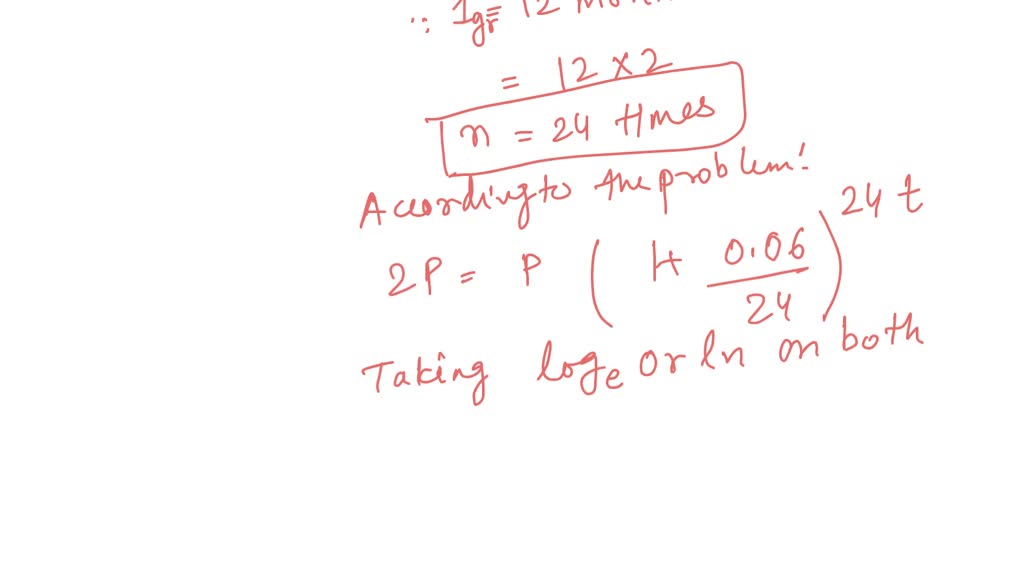 ∵ 1yr = 12 Mon
= 12 × 2
n = 24 times
According to the problem:
2P = P ( 1+ 0.06/24 )^24t
Taking log_e or ln on both